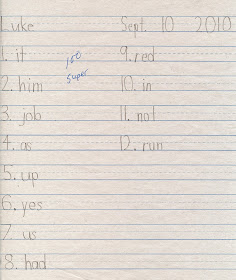 Luke Sept. 10 2010
1. it
100
Super
2. him
3. job
4. as
5. up
6. yes
7. us
8. had
9. red
10. in
11. not
12. run